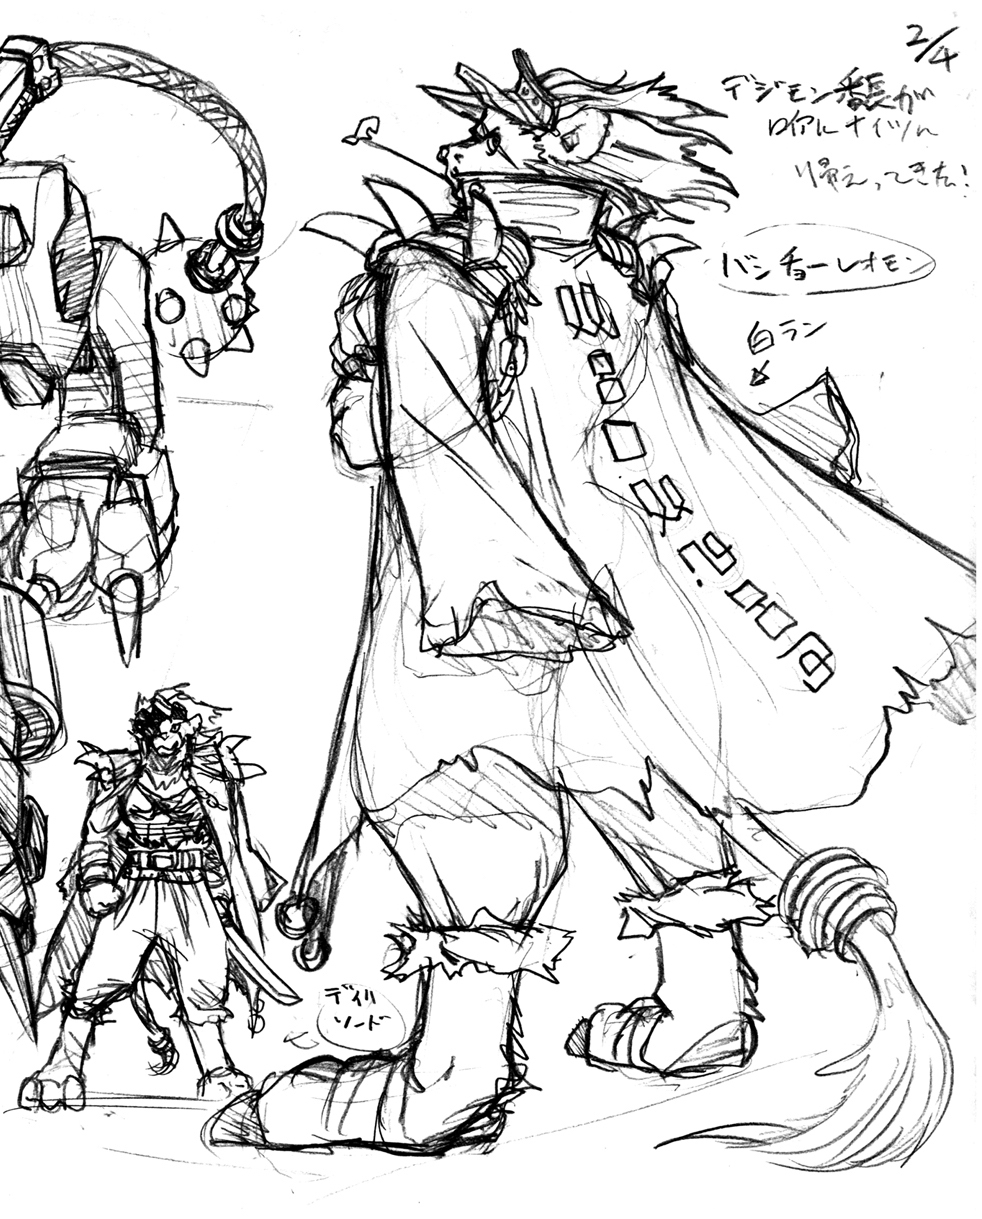 2/4
デジモン番長が
ロイアルナイツに
帰えってきた!
バンチョーレオモン
白ラン